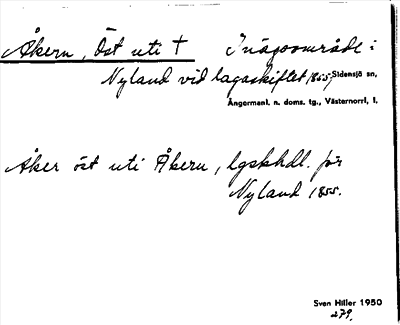 Åkern, Öst uti † Inägoområde i
Nyland vid lagaskiftet 1855 Sidensjö sn,
Ångermanl. n. doms. tg., Västernorrl. l.
Åker öst uti Åkern, lgskhdl. för
Nyland 1855.
Sven Hiller 1950
279.